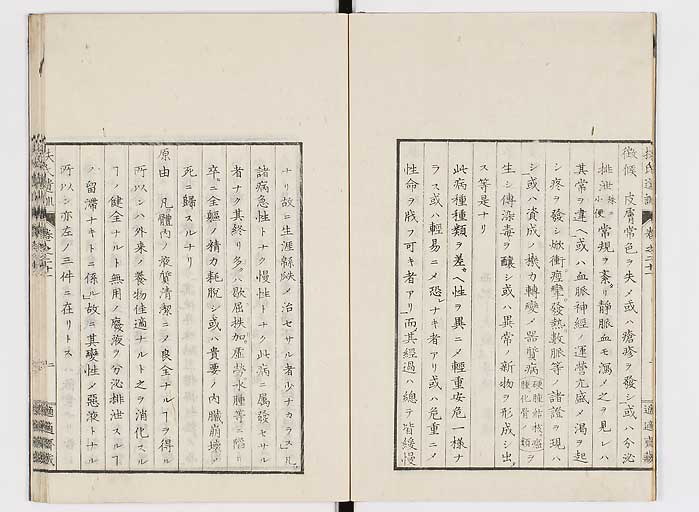 扶氏遺訓 巻之二十一 適適齋藏
徴候 皮膚常色ヲ失メ或ハ瘡疹ヲ發シ或ハ分泌
排泄殊ニ小便常規ヲ紊リ靜脈血モ瀉メ之ヲ見レハ
其常ヲ違ヘ或ハ血脈神經ノ運營亢盛メ渇ヲ起
シ疼ヲ發シ焮衝痙攣發熱數脈等ノ諸證ヲ現ハ
シ或ハ資成ノ機力轉變メ器質病硬腫結核癌腫化骨ノ類ヲ
生シ傳染毒ヲ釀シ或ハ異常ノ新物ヲ形成シ出
ス等是ナリ
此病種種類ヲ差ヘ性ヲ異ニメ輕重安危一樣ナ
ラス或ハ輕易ニメ恐レナキ者アリ或ハ危重ニメ
性命ヲ戕フ可キ者アリ而其經過ハ總テ皆緩慢
ナリ故ニ生涯緜聯メ治セサル者少ナカラス凡
諸病急性トナク慢性トナク此病ニ属發セサル
者ナク其終リ多ハ歇屈扶加虚勞水腫等ニ陥リ
卒ニ全軀ノ精力耗脱シ或ハ貴要ノ内臓崩壊メ
死ニ歸スルナリ
原由 凡體内ノ液質清潔ニメ良全ナルヿヲ得ル
所以ンハ外来ノ養物佳適ナルト之ヲ消化スル
ヿノ健全ナルト無用ノ廢液ヲ分泌排泄スルヿ
ノ留滯ナキトニ係ル故ニ其變性メ惡液トナル
所以ン亦左ノ三件ニ在リトス
扶氏遺訓 巻之二十一 二 適適齋藏